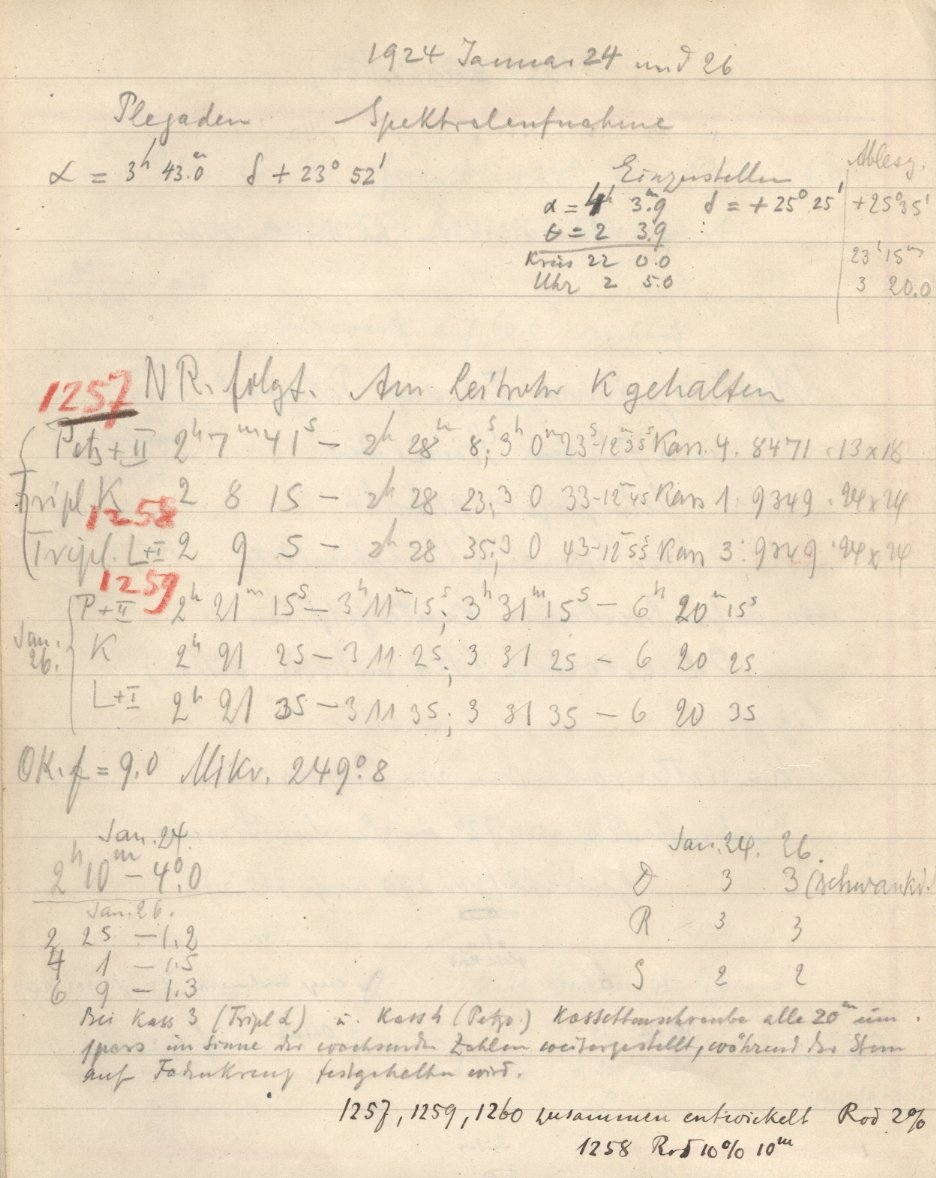 1924 Januar 24 und 26
Plejaden Spektralaufnahme
α = 3h 43.0m δ + 23° 52'
Einzustellen
Ablesg.
α = 4h 3.9m δ = + 25° 25' +25°35'
θ = 2 3.9
Kreis 22 0.0 23h 15m
Uhr 2 5.0 3 20.0
1257 NR. folgt. Am Leitrohr K gehalten
Petz + II 2h 7m 41s – 2h 28m 8s; 3h 0m 23s – 12m 35s Kass. 4. 8471 · 13 x 18
Tripl. K 2 8 15 – 2h 28 23; 3 0 33 – 12m 45s Kass 1. 9349 · 24 x 24
1258
Tripl. L+I 2 9 5 – 2h 28 35; 3 0 43 – 12m 55s Kass 3. 9349 · 24 x 24
1259
Jan. 26.
P + II 2h 21m 15s – 3h 11m 15s; 3h 31m 15s – 6h 20m 15s
K 2h 21 25 – 3 11 25; 3 31 25 – 6 20 25
L+I 2h 21 35 – 3 11 35; 3 31 35 – 6 20 35
OK. f = 9.0 Mikr. 249°.8
Jan. 24.
2h 10m – 4°.0
Jan. 26.
2 25 – 1.2
4 1 – 1.5
6 9 – 1.3
Jan. 24. 26.
D 3 3 (schwankd.)
R 3 3
S 2 2
Bei Kass 3 (Tripl L) u. Kass 4 (Petz.) Kassettenschraube alle 20m um
1 pars im Sinne der wachsenden Zahlen weitergestellt, während der Stern
auf Fadenkreuz festgehalten wird.
1257, 1259, 1260 zusammen entwickelt Rod 2%
1258 Rod 10% 10m